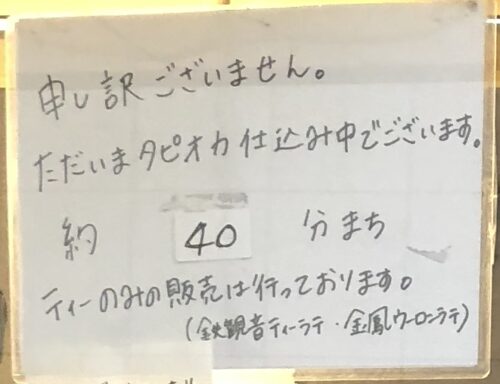 申し訳ございません。
ただいまタピオカ仕込み中でございます。
約 40 分まち
ティーのみの販売は行っております。
(鉄観音ティーラテ・金鳳ウーロンラテ)